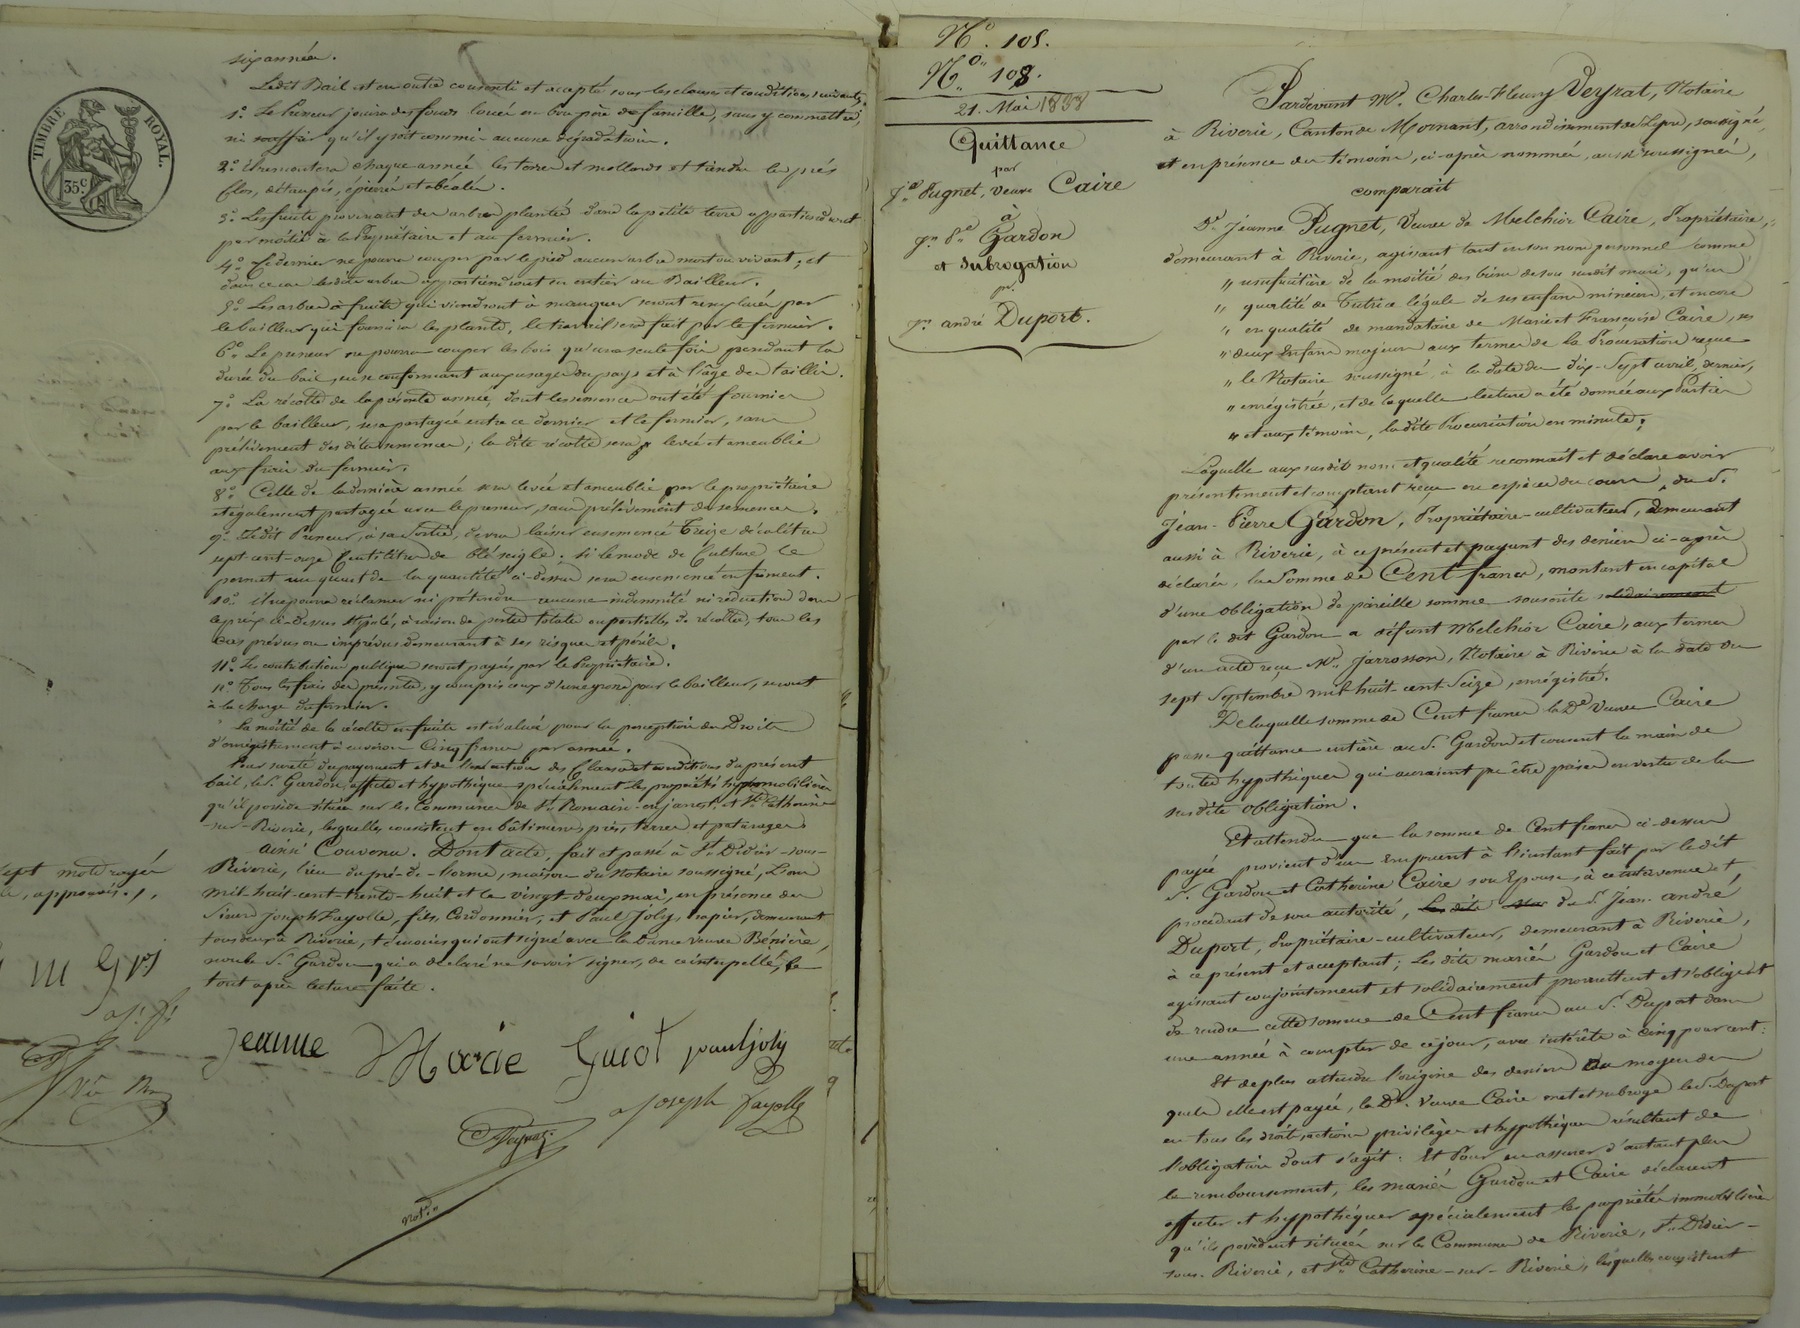 six années.
Ledit Bail est en outre consenti et accepté sous les clauses et conditions suivantes,
1.º Le Preneur jouira des fonds loués en bon père de famille, sans y commettre,
ni souffrir qu'il y soit commis aucune dégradation.
2.º Il remontera chaque année les terres et mollards et tiendra les prés
clos, détaupés, épierrés et
3.º Les fruits provenant des arbres plantés dans la petite terre appartiendront
par moitié à la Propriétaire et au fermier.
4.º Ce dernier ne pourra couper par le pied aucun arbre mort ou vivant; et
dans ce cas lesdits arbres appartiendront en entier au Bailleur.
5.º Les arbres à fruits qui viendront à manquer seront remplacés par
le bailleur qui fournira les plants, le travail sera fait par le fermier.
6.º Le preneur ne pourra couper les bois qu'une seule fois pendant la
durée du bail, en se conformant aux usages du pays et à l'âge des taillis.
7.º La récolte de la présente année, dont les semences ont été fournies
par le bailleur, sera partagée entre ce dernier et le fermier, sans
prélèvement des dites semences; la dite récolte sera levée et ameublie
aux frais du fermier.
8.º Celle de la dernière année sera levée et ameublie par le propriétaire
et également partagée avec le preneur, sans prélèvement de semences.
9.º Ledit Preneur, à sa sortie, devra laisser ensemencé treize décalitres
sept cent-onze Centilitres de blé seigle. Si le mode de Culture le
permet un quart de la quantité ci-dessus sera ensemencé en froment.
10.º il ne pourra réclamer ni prétendre aucune indemnité ni réduction dans
le prix ci-dessus stipulé, à raison de pertes totales ou partielles de récoltes, tous les
cas prévus ou imprévus demeurant à ses risques et périls.
11.º Les contributions publiques seront payées par le Propriétaire.
11.º Tous les frais des présentes, y compris ceux d'une grosse pour le bailleur, seront
à la charge du fermier.
La moitié de la récolte en fruits est évaluée pour la perception des Droits
d'enregistrement à environ Cinq francs par année.
Pour sureté du payement et de l'exécution des Clauses et conditions du présent
bail, le S. Gardon affecte et hypothèque spécialement les propriétés immobilières
qu'il possède situées sur les Communes de St. Romain-en-jarest, et Ste. Catherine
-sur-Riverie, lesquelles consistent en bâtiments, prés, terres et paturages
Ainsi Convenu. Dont acte, fait et passé à St. Didier-sous-
Riverie, lieu du pré-de-l'orme, maison du Notaire soussigné, L'an
mil-huit-cent-trente-huit et le vingt-deux mai, en présence des
Sieurs Joseph Fayolle, fils, Cordonnier, et Paul Joly, sapier, demeurant
tous deux à Riverie, témoins qui ont signé avec la Dame veuve Bénière,
non le S. Gardon qui a déclaré ne savoir signer, de ce interpellé, le
tout après lecture faite.
sept mots rayés
approuvés.
Jeanne Marie Guiot pauljoly
joseph fayolle
Veyrat
not.re
TIMBRE ROYAL.
35 c
N.º 108.
N.º 108.
21. Mai 1838
Quittance
par
J.e Pugnet, veuve Caire
à
Gardon
et Subrogation
p.r
andré Duport.
Pardevant M.e Charles-Fleury Veyrat, Notaire
à Riverie, Canton de Mornant, arrondissement de Lyon, soussigné,
et en présence des témoins, ci-après nommés, aussi soussignés,
comparait
D.e Jeanne Pugnet, Veuve de Melchior Caire, Propriétaire,
demeurant à Riverie, agissant tant en son nom personnel comme
" usufruitière de la moitié des biens de son susdit mari, qu'en
" qualité de Tutrice légale de ses enfans mineurs, et encore
" en qualité de mandataire de Marie et Françoise Caire, ses
" deux Enfans majeurs aux termes de la Procuration reçue
" le Notaire soussigné, à la date du dix-sept avril dernier,
" enrégistrée, et de laquelle lecture a été donnée aux Parties
" et aux témoins, la dite Procuration en minute;
Laquelle aux susdits noms et qualité reconnait et déclare avoir
présentement et comptant reçu en espèces du cours, du S.
Jean-Pierre Gardon, Propriétaire-cultivateur, demeurant
aussi à Riverie, à ce présent et payant des deniers ci-après
déclarés, la Somme de Cent francs, montant en capital
d'une obligation de pareille somme souscrite solidairement
par le dit Gardon a défunt Melchior Caire, aux termes
d'un acte reçu M.e Jarrosson, Notaire à Riverie à la date du
sept Septembre mil-huit-cent-Seize, enrégistré.
De laquelle somme de Cent francs la D.e Veuve Caire
passe quittance entière au S. Gardon et consent la main de
toutes hypothèques qui auraient pu être prises en vertu de la
susdite obligation.
Et attendu que la somme de Cent francs ci-dessus
payée provient d'un Emprunt à l'instant fait par le dit
S. Gardon et Catherine Caire son Epouse, à ce intervenue et
procédant de son autorité, du S. Jean-André
Duport, Propriétaire-cultivateur, demeurant à Riverie,
à ce présent et acceptant; Les dits mariés Gardon et Caire
agissant conjointement et solidairement promettent et s'obligent
de rendre cette somme de Cent francs au S. Duport dans
une année à compter de ce jour, avec intérêts à Cinq pour cent.
Et de plus attendu l'origine des deniers au moyen des
quels elle est payée, la D.e Veuve Caire met et subroge le S. Duport
en tous les droits, actions privilèges et hypothèques résultant de
l'obligation dont s'agit. Et Pour en assurer d'autant plus
le remboursement, les mariés Gardon et Caire déclarent
affecter et hypothéquer spécialement les propriétés immobilières
qu'ils possèdent situées sur les Communes de Riverie, St. Didier-
sous-Riverie, et Ste. Catherine-sur-Riverie, lesquelles consistent